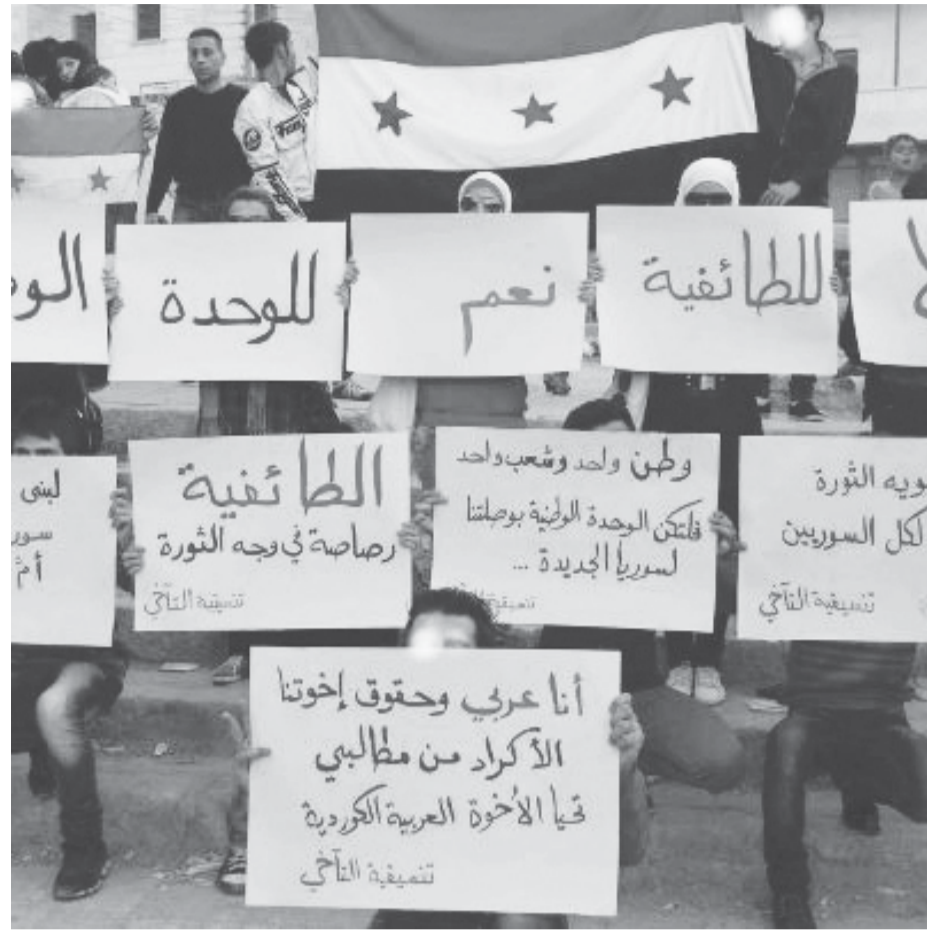 لا
للطائفية
نعم
للوحدة
لكل السوريين
تنسيقية التآخي
وطن واحد وشعب واحد
فلتكن الوحدة الوطنية بوصلتنا
لسوريا الجديدة ...
الطائفية
رصاصة في وجه الثورة
تنسيقية التآخي
أنا عربي وحقوق إخوتنا
الأكراد من مطالبي
تحيا الأخوة العربية الكوردية
تنسيقية التآخي